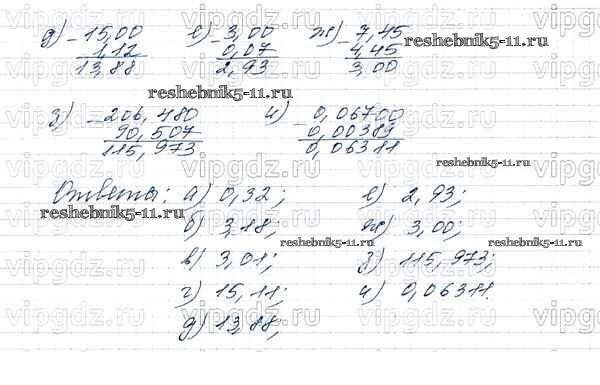 д) - 15,00 е) - 3,00 ж) - 7,45
1,12 0,07 4,45
13,88 2,93 3,00
reshebnik5-11.ru
reshebnik5-11.ru
з) - 206,480 и) - 0,06700
90,507 0,00389
115,973 0,06311
reshebnik5-11.ru
Ответы: а) 0,32; е) 2,93;
reshebnik5-11.ru
б) 3,88; ж) 3,00;
reshebnik5-11.ru reshebnik5-11.ru
в) 3,01; з) 115,973;
г) 15,11; и) 0,06311.
д) 13,88;
vipgdz.ru